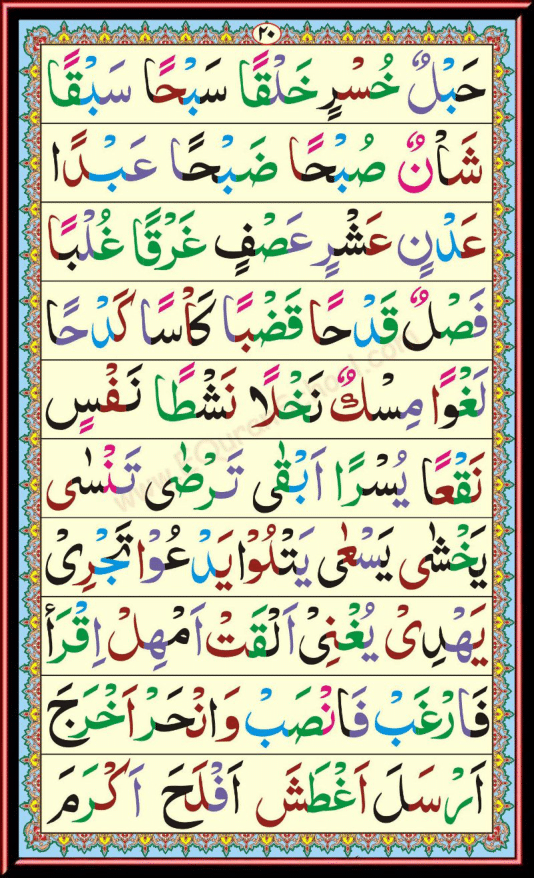 ٢٠
حَبْلٌ خُسْرٍ خَلْقًا سَبْحًا سَبْقًا
شَأْنٌ صُبْحًا ضَبْحًا عَبْدًا
عَدْنٍ عَشْرٍ عَصْفٍ غَرْقًا غُلْبًا
فَصْلٌ قَدْحًا قَضْبًا كَأْسًا كَدْحًا
لَغْوًا مِسْكٌ نَخْلًا نَشْطًا نَفْسٍ
نَقْعًا يُسْرًا اَبْقٰى تَرْضٰى تَنْسٰى
يَخْشٰى يَسْعٰى يَتْلُوْا يَدْعُوْا تَجْرِىْ
يَهْدِىْ يُغْنِىْ اَلْقَتْ اَمْهِلْ اِقْرَأْ
فَارْغَبْ فَانْصَبْ وَانْحَرْ اَخْرَجَ
اَرْسَلَ اَغْطَشَ اَفْلَحَ اَكْرَمَ
www.eQuranSchool.com